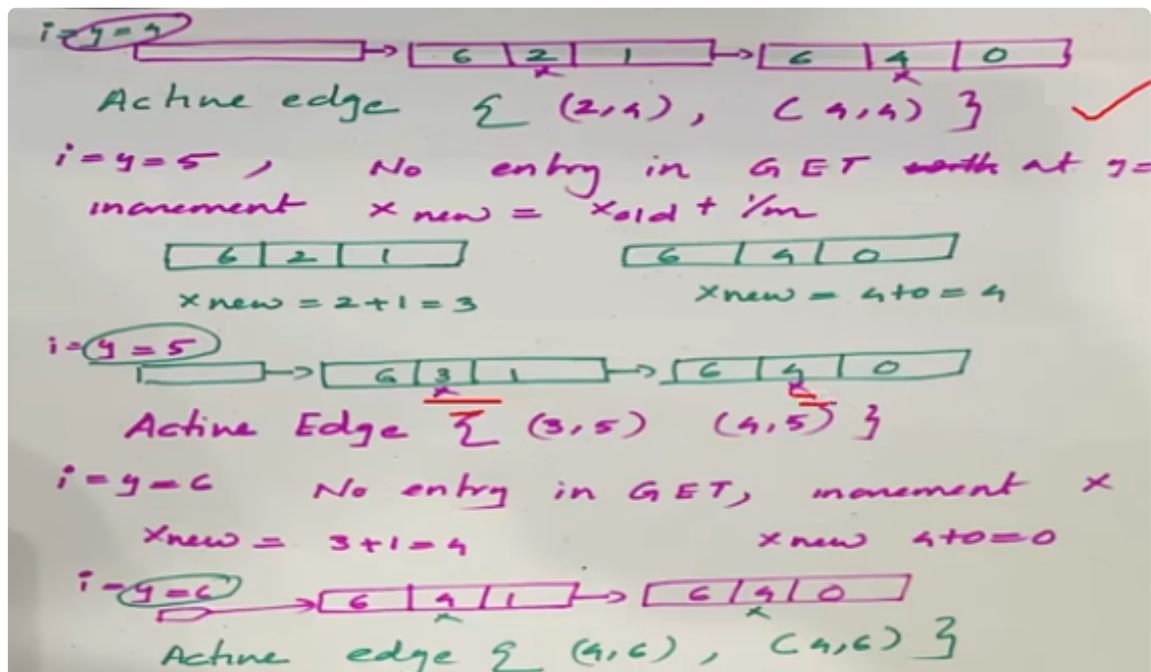 i = y = 4
6 2 1 6 4 0
x x
Active edge { (2,4), (4,4) }
i = y = 5, No entry in GET at y =
increment x new = x old + 1/m
6 2 1 6 4 0
x new = 2+1 = 3 x new = 4+0 = 4
i = y = 5
6 3 1 6 4 0
x x
Active Edge { (3,5) (4,5) }
i = y = 6 No entry in GET, increment x
x new = 3+1 = 4 x new 4+0=0
i = y = 6
6 4 1 6 4 0
x x
Active edge { (4,6), (4,6) }